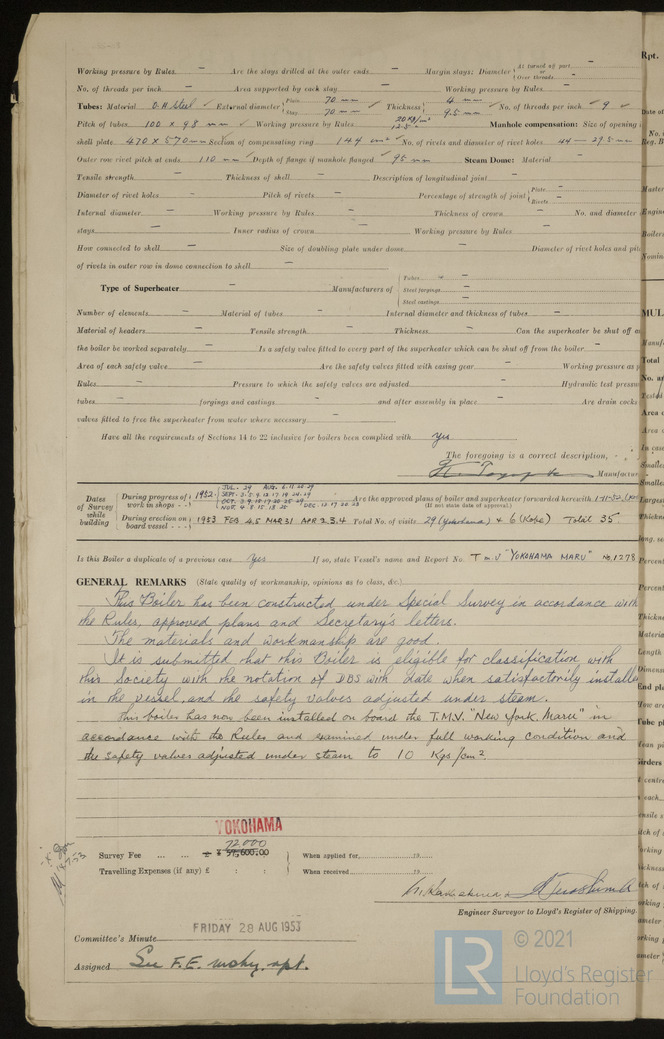 Working pressure by Rules — Are the stays drilled at the outer ends — Margin stays: Diameter { At turned off part, — or Over threads —
No. of threads per inch — Area supported by each stay — Working pressure by Rules —
Tubes: Material O.H Steel ✓ External diameter { Plain 70 mm Stay 70 mm ✓ Thickness { 4 mm 9.5 mm ✓ No. of threads per inch ✓ 9 ✓
Pitch of tubes 100 x 98 mm ✓ Working pressure by Rules 20 Kg/cm² 12.5 Manhole compensation: Size of opening i
shell plate 470 x 570 mm Section of compensating ring 144 cm² ✓ No. of rivets and diameter of rivet holes 44 — 29.5 mm
Outer row rivet pitch at ends 110 mm ✓ Depth of flange if manhole flanged ✓ 95 mm Steam Dome: Material —
Tensile strength — Thickness of shell — Description of longitudinal joint —
Diameter of rivet holes — Pitch of rivets — Percentage of strength of joint { Plate — Rivets —
Internal diameter — Working pressure by Rules — Thickness of crown — No. and diameter
stays — Inner radius of crown — Working pressure by Rules —
How connected to shell — Size of doubling plate under dome — Diameter of rivet holes and pit
of rivets in outer row in dome connection to shell —
Type of Superheater — Manufacturers of { Tubes — Steel forgings — Steel castings —
Number of elements — Material of tubes — Internal diameter and thickness of tubes —
Material of headers — Tensile strength — Thickness — Can the superheater be shut off a
the boiler be worked separately — Is a safety valve fitted to every part of the superheater which can be shut off from the boiler —
Area of each safety valve — Are the safety valves fitted with easing gear — Working pressure as p
Rules — Pressure to which the safety valves are adjusted — Hydraulic test pressu
tubes — forgings and castings — and after assembly in place — Are drain cocks
valves fitted to free the superheater from water where necessary —
Have all the requirements of Sections 14 to 22 inclusive for boilers been complied with Yes
The foregoing is a correct description,
Manufactur
Dates of Survey while building
During progress of work in shops - - } 1952. JUL. 29 AUG. 6.11.20.29
SEPT. 3.5.9.12.17.19.24.29
OCT. 3.9.15.17.20.25.29
NOV. 4.8.15.18.25 DEC. 12.17.20.23
Are the approved plans of boiler and superheater forwarded herewith 1-11-52
(If not state date of approval.)
During erection on board vessel - - - } 1953 FEB 4.5 MAR 31 APR 2.3.4 Total No. of visits 29 (Yokohama) & 6 (Kobe) Total 35.
Is this Boiler a duplicate of a previous case Yes If so, state Vessel's name and Report No. T.M.V "YOKOHAMA MARU" No. 1278
GENERAL REMARKS (State quality of workmanship, opinions as to class, &c.)
This Boiler has been constructed under Special Survey in accordance with
the Rules, approved plans and Secretary's letters.
The materials and workmanship are good.
It is submitted that this Boiler is eligible for classification with
this Society with the notation of DBS with date when satisfactorily installe
in the vessel, and the safety valves adjusted under steam.
This boiler has now been installed on board the T.M.V. "New York Maru" in
accordance with the Rules and examined under full working condition and
the safety valves adjusted under steam to 10 Kgs/cm².
YOKOHAMA
72,000
Survey Fee ... ... £ ¥ 57,600.00 When applied for, 19
Travelling Expenses (if any) £ : : When received 19
Engineer Surveyor to Lloyd's Register of Shipping.
FRIDAY 28 AUG 1953
Committee's Minute
Assigned See F.E. mchy. rpt.
LR
© 2021
Lloyd's Register
Foundation
Rpt.